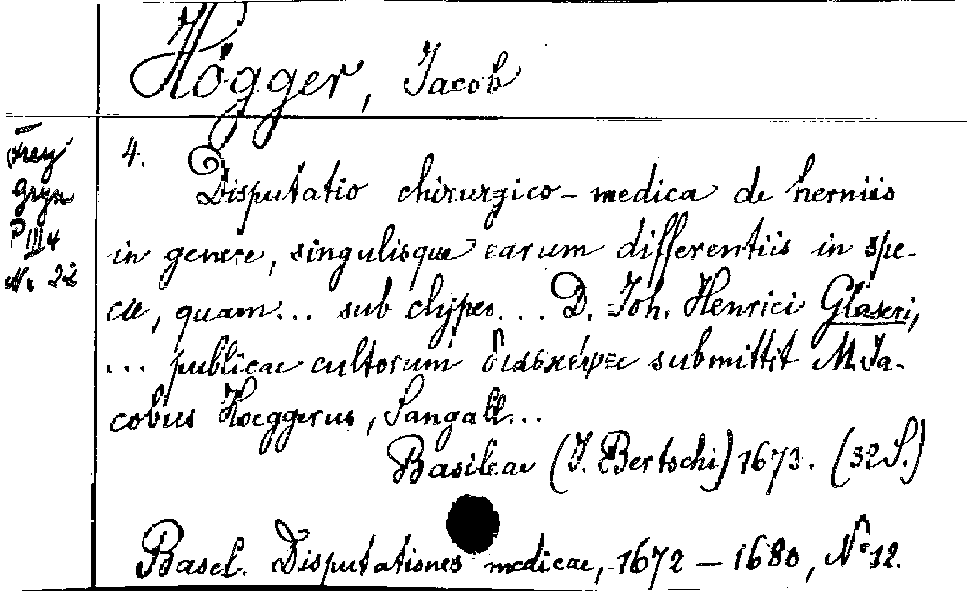 Högger, Jacob
Frey
Gryn
P III 4
No 22
4.
Disputatio chirurgico-medica de herniis
in genere, singulisque earum differentiis in spe-
cie, quam... sub clypeo... D. Joh. Henrici Glaseri,
... publicae cultorum διασκέψει submittit M. Ja-
cobus Hoeggerus, Sangall...
Basileae (J. Bertschi) 1673. (32 S.)
Basel. Disputationes medicae, 1672 – 1680, No 12.